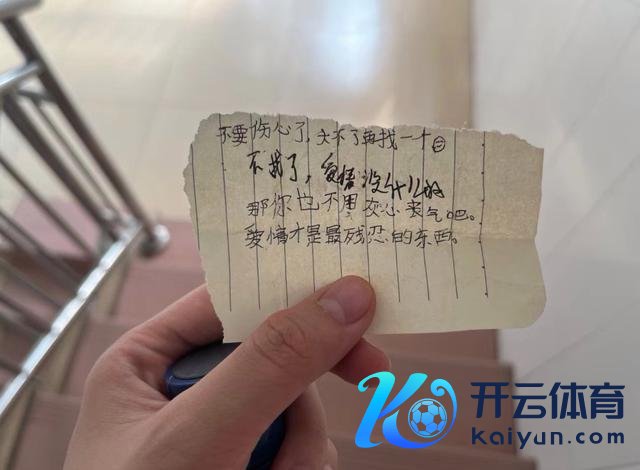 不要伤心了，大不了再找一个
不找了，爱情没什么的
那你也不用灰心丧气吧。
爱情才是最残忍的东西。
开云体育
kaiyun.com